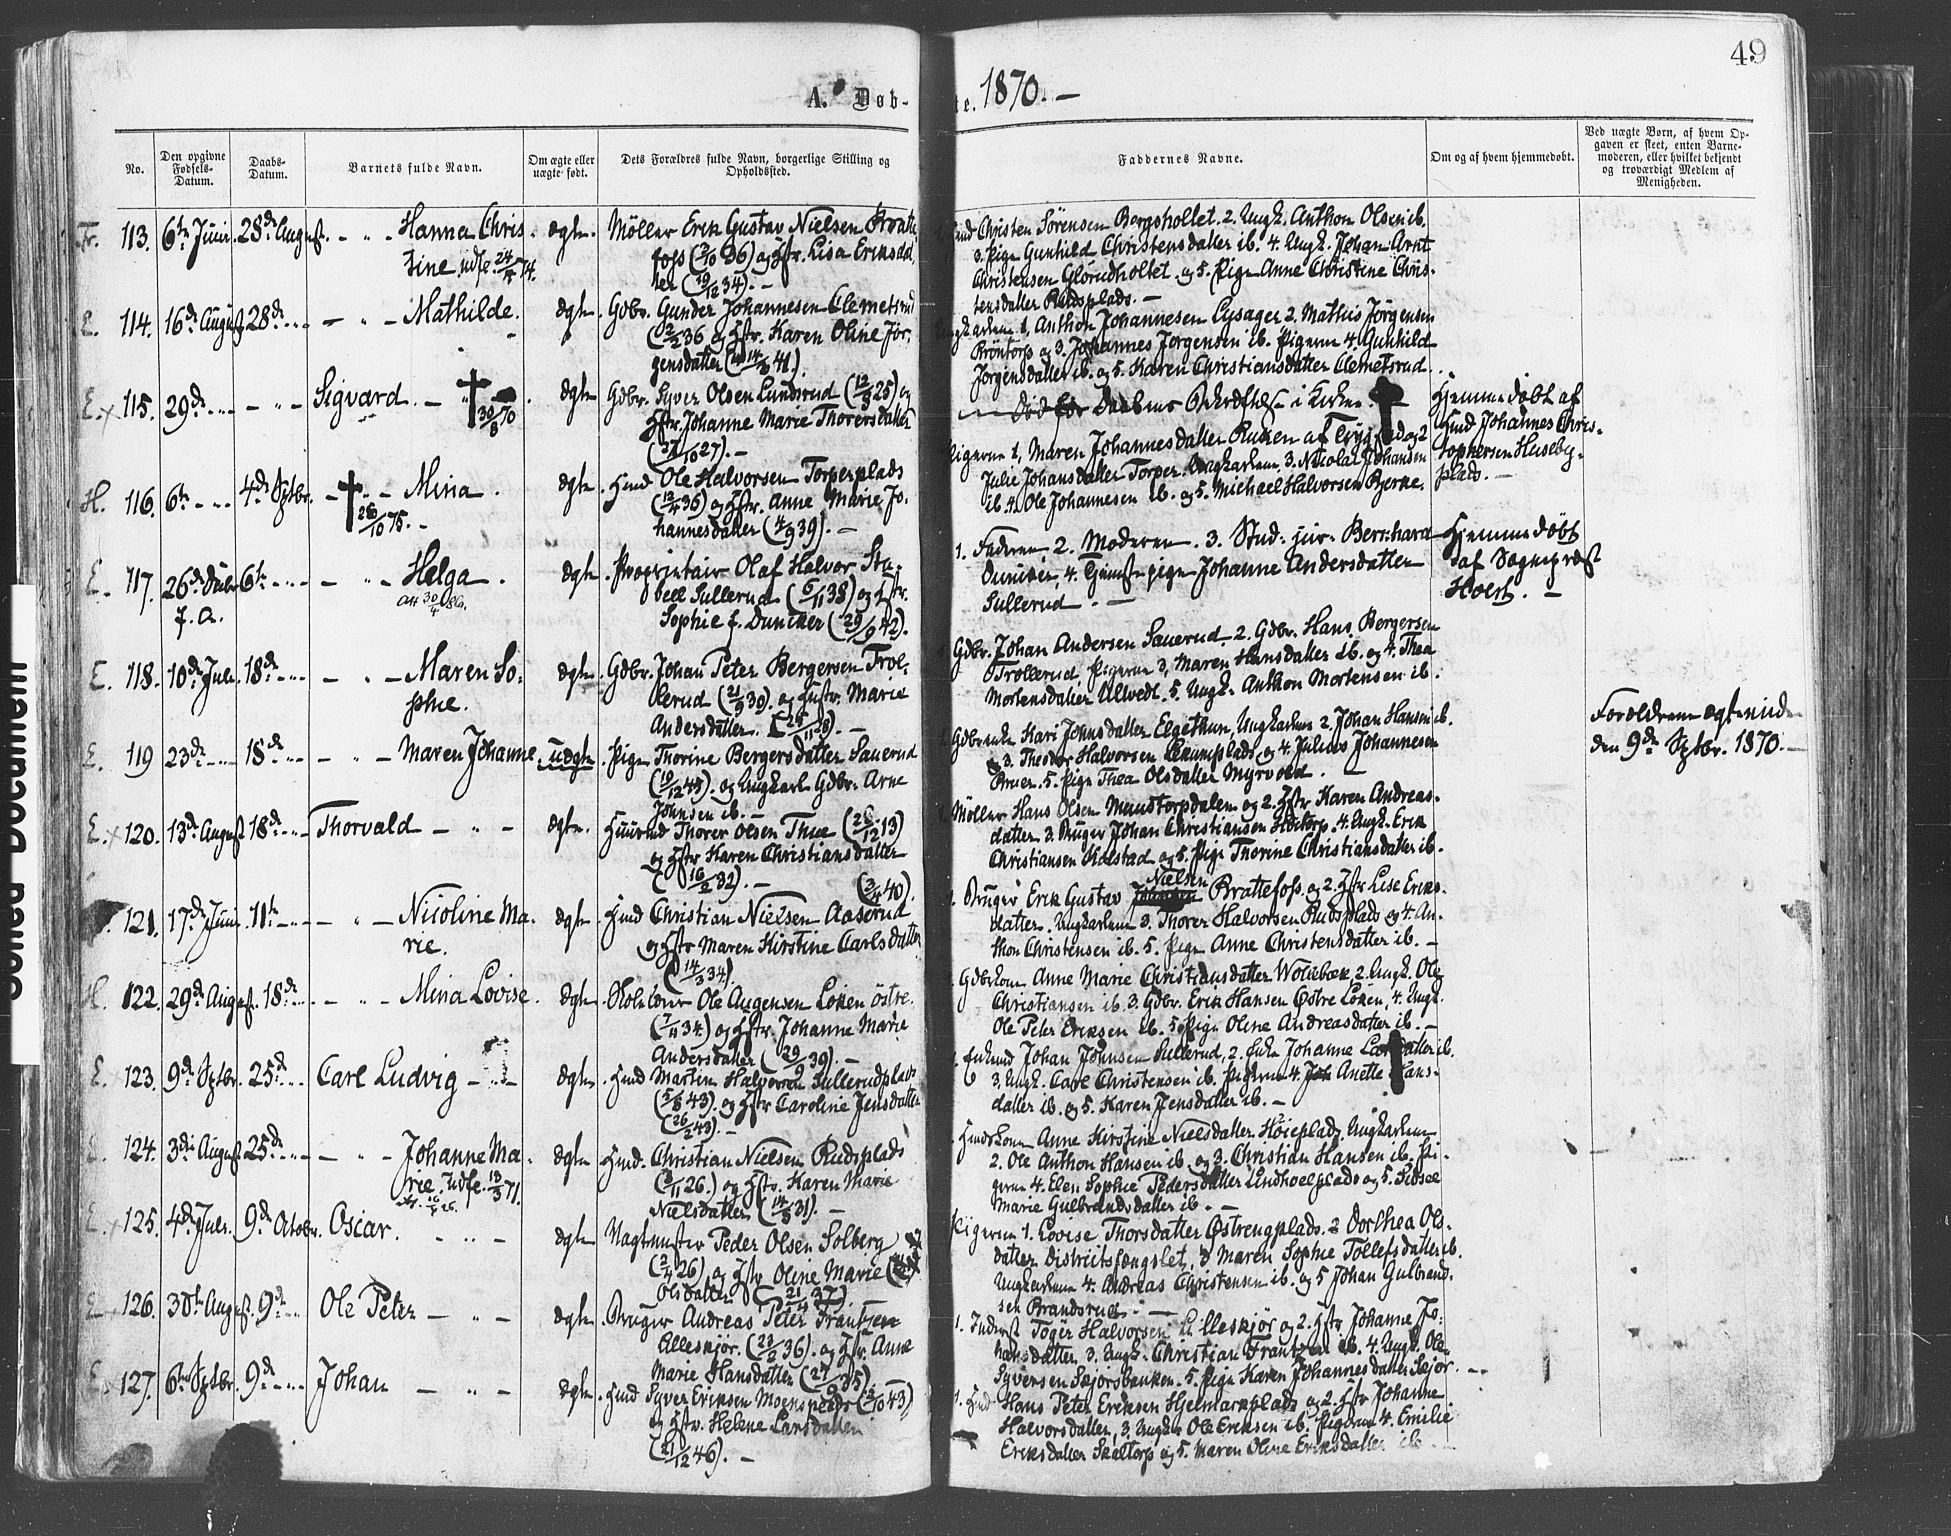 49
A. Døb-
te. 1870. -
No.
Den opgivne
Fødsels-
Datum.
Daabs-
Datum.
Barnets fulde Navn.
Om ægte eller
uægte født.
Dets Forældres fulde Navn, borgerlige Stilling og
Opholdssted.
Faddernes Navne.
Om og af hvem hjemmedøbt.
Ved uægte Børn, af hvem Op-
gaven er skeet, enten Barne-
moderen, eller hvilket bekjendt
og troværdigt Medlem af
Menigheden.
113. 6te Juni. 28de August. - " - Hanna Chris- ægte. Møller Erik Gustav Nielsen Bratte
tine. udfl. 24/4 74. foss (2/10 36) og Hstr. Lisa Eriksdat
ter (19/12 34). -
Christen Sørensen Bergsholtet. 2. Ungk. Anthon Olsen ib.
3. Pige Gunhild Christensdatter ib. 4. Ungk. Johan Arnt
Christensen Glørudholtet og 5. Pige Anne Christine Chris-
tensdatter Rudsplads. -
E. 114. 16de August 28de - " - Mathilde. ægte. Gdbr. Gunder Johannesen Clemetsrud
(12/2 36 og Hstr. Karen Oline Jør-
gensdatter (14/6 41).
Ungkarlene 1, Anthon Johannesen Lysager 2. Mathis Jørgensen
Brøntorp og 3. Johannes Jørgensen ib. Pigerne 4. Gunhild
Jørgensdatter ib. og 5. Karen Christiansdatter Clemetsrud.
E. x 115. 29de - " - Sigvard. - 30/8 70 ægte Gdbr. Syver Olsen Lundsrud (12/9 25) og
Hstr. Johanne Marie Thorersdatter
27). -
Død før Daabens Bekræftelse i Kirken.
Hjemmedøbt af
Hmd Johannes Chris-
tophersen Huseby-
plads. -
H. 116. 6te - 4de Sptbr. - " - Mina. 28/10 75. - ægte. Hmd Ole Halvorsen Torperplads
(12/4 36) og Hstr. Anne Marie Jo-
hannesdatter (4/9 39). -
Pigerne 1, Maren Johannesdatter Ruken af og 2
Julie Johansdatter Torper. Ungkarlene 3. Nicolai Johansen
ib. 4. Ole Johannesen ib. og 5. Michael Halvorsen Bjerke.
E. 117. 26de 6te - " - Helga. ægte. Proprietair Olaf Halvor Stu-
f. A. 30/4 86. Sullerud (6/11 38) og Hstr.
Sophie f. Duncker (29/9 42).
1. Faderen 2. Moderen. 3. Stud: jur: Bernhard
Duncker, 4. Tjenestepige Johanne Andersdatter
Sullerud. -
Hjemmedøbt
af Sognepræst
Holst. -
E. 118. 10de Juli. 18de - " - Maren So- ægte. Gdbr. Johan Peter Bergersen Trol-
phie. lerud (21/9 39). og Hustr. Marie
Andersdatter. (24/11 28). -
Gdbr. Johan Andersen Sauerud 2. Gdbr. Hans Bergersen
Trollerud. Pigerne 3, Maren Hansdatter ib. og 4. Thea
Mortensdatter Ullvedt. 5. Ungk. Anthon Mortensen ib.
E. 119 23de - 18de - " - Maren Johanne. uægte Pige Thorine Bergersdatter Sauerud
(19/12 43). og Ungkarl Gdbr. Arne
Johnsen ib. -
Kari Johnsdatter Elgethun, Ungkarlene 2. Johan Hansen ib.
3. Theodor Halvorsen og 4. Julius Johannesen
5. Pige Thea Olsdatter Myrvold. -
Forældrene ægteviede
den 9de Sptbr. 1870. -
E. x 120. 13de August 18de Thorvald - " - ægte. Huusmd Thorer Olsen Thue (26/12 13)
og Hstr Karen Christiansdatter
(16/2 32). -
Møller Hans Olsen Mundtorpdalen og 2. Hstr Karen Andreas-
datter. 3. Bruger Johan Christiansen 4. Ungk. Erik
Christiansen Kolstad og 5. Pige Thorine Christiansdatter ib.
121. 17de Juni. 11te - " - Nicoline Ma- ægte. Hmd Christian Nielsen Aaserud (3/4 40).
rie. og Hstr Maren Kirstine Carlsdatter
(14/3 34).
Nielsen
1. Bruger Erik Gustav Brattefoss og 2. Hstr Lise Eriks-
datter. Ungkarlene 3. Thorer Halvorsen Rudsplads og 4. An-
thon Christensen ib. 5. Pige Anne Christensdatter ib. -
H. 122. 29de August. 18de - " - Mina Lovise. ægte. Ole Augensen Løken østre.
(7/11 34) og Hstr. Johanne Marie
Andersdatter (29/9 39). -
Gdbrkone Anne Marie Christiansdatter Wolebæk 2. Ungk. Ole
Christiansen ib. 3. Gdbr. Erik Hansen Østre Løken, 4. Ungk.
Ole Peter Eriksen ib. 5. Pige Oline Andreasdatter ib. -
E. 123. 9de Sptbr. 25de Carl Ludvig - " - ægte. Hmd Martin Halvorsen Sullerudplads
(5/8 43). og Hstr Caroline Jensdatter
(26/2 43). -
Enkemd Johan Johnsen Sullerud, 2. Enke Johanne ib.
3. Ungk. Carl Christensen ib. Pigerne 4. Anette Hans-
datter ib. og 5. Karen Jensdatter ib. -
E. 124. 3de August 25de - " - Johanne Ma- ægte Hmd. Christian Nielsen Rudsplads
rie. udfl. 13/3 71. 26.) og Hstr. Karen Marie
Nielsdatter (14/8 31). -
Hmdskone Anne Kirstine Nielsdatter Høieplads. Ungkarlene
2. Ole Anthon Hansen ib. og 3. Christian Hansen ib. Pi-
gerne 4. Elen Sophie Pedersdatter Lindhoelplads og 5. Sidsel
Marie Gulbrandsdatter ib. -
E. x 125. 4de Juli. 9de Octobr. Oscar. - " - ægte Vagtmester Peder Olsen Solberg
(2/4 26) og Hstr Oline Marie
Olsdatter (21/4 37)
Pigerne 1. Lovise Thorsdatter Østrengplads. 2 Dorthea Ols-
datter Districtsfængslet, 3 Maren Sophie Tollefsdatter ib.
Ungkarlene 4. Andreas Christensen ib. og 5 Johan Gulbrand-
sen Brandsrud. -
E 126. 30te August. 9de Ole Peter - " - ægte. Bruger Andreas Peter Frantzen
Lilleskjør. (23/2 36). og Hstr. Anne
Marie Hansdatter (27/9 35).
1. Inderst Toger Halvorsen Lilleskjør og 2. Hstr Johanne Jo-
hansdatter 3. Ungk. Christian Frantzen ib. 4. Ungk. Ole
Syversen Skjørsbakken. 5. Pige Karen Johannesdatter Skjør. -
E. 127. 6te Sptbr. 9de Johan - " - ægte. Hmd Syver Eriksen Moensplads (12/10 43)
og Hstr. Helene Larsdatter
(21/12 46). -
1. Hmd Hans Peter Eriksen Hjelmarkplads og 2. Hstr Johanne
Halvorsdatter, 3. Ungk Ole Eriksen ib. Pigerne 4. Emilie
Eriksdatter Skaltorp og 5. Maren Oline Eriksdatter ib. -